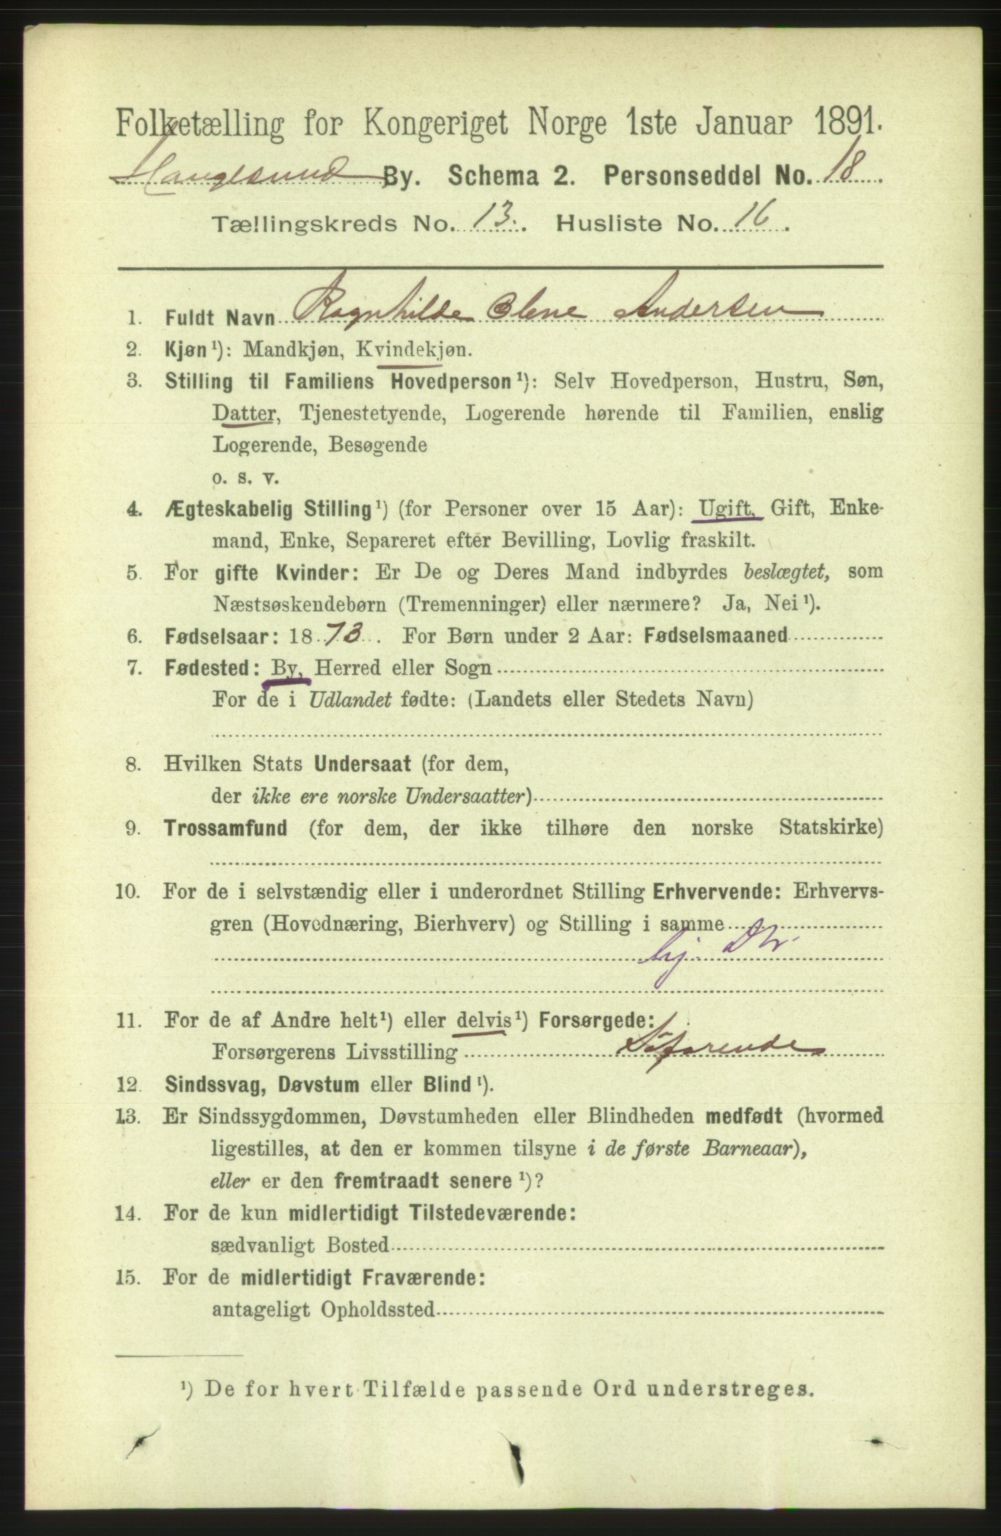 Folketælling for Kongeriget Norge 1ste Januar 1891.
Haugesund By. Schema 2. Personseddel No. 18.
Tællingskreds No. 13. Husliste No. 16.
1. Fuldt Navn Ragnhilde Olene Andersen
2. Kjøn¹): Mandkjøn, Kvindekjøn.
3. Stilling til Familiens Hovedperson¹): Selv Hovedperson, Hustru, Søn,
Datter, Tjenestetyende, Logerende hørende til Familien, enslig
Logerende, Besøgende
o. s. v.
4. Ægteskabelig Stilling¹) (for Personer over 15 Aar): Ugift, Gift, Enke-
mand, Enke, Separeret efter Bevilling, Lovlig fraskilt.
5. For gifte Kvinder: Er De og Deres Mand indbyrdes beslægtet, som
Næstsøskendebørn (Tremenninger) eller nærmere? Ja, Nei¹).
6. Fødselsaar: 1873. For Børn under 2 Aar: Fødselsmaaned
7. Fødested: By, Herred eller Sogn
For de i Udlandet fødte: (Landets eller Stedets Navn)
8. Hvilken Stats Undersaat (for dem,
der ikke ere norske Undersaatter)
9. Trossamfund (for dem, der ikke tilhøre den norske Statskirke)
10. For de i selvstændig eller i underordnet Stilling Erhvervende: Erhvervs-
gren (Hovednæring, Bierhverv) og Stilling i samme
11. For de af Andre helt¹) eller delvis¹) Forsørgede:
Forsørgerens Livsstilling Søfarende
12. Sindssvag, Døvstum eller Blind¹).
13. Er Sindssygdommen, Døvstumheden eller Blindheden medfødt (hvormed
ligestilles, at den er kommen tilsyne i de første Barneaar),
eller er den fremtraadt senere¹)?
14. For de kun midlertidigt Tilstedeværende:
sædvanligt Bosted
15. For de midlertidigt Fraværende:
antageligt Opholdssted
¹) De for hvert Tilfælde passende Ord understreges.